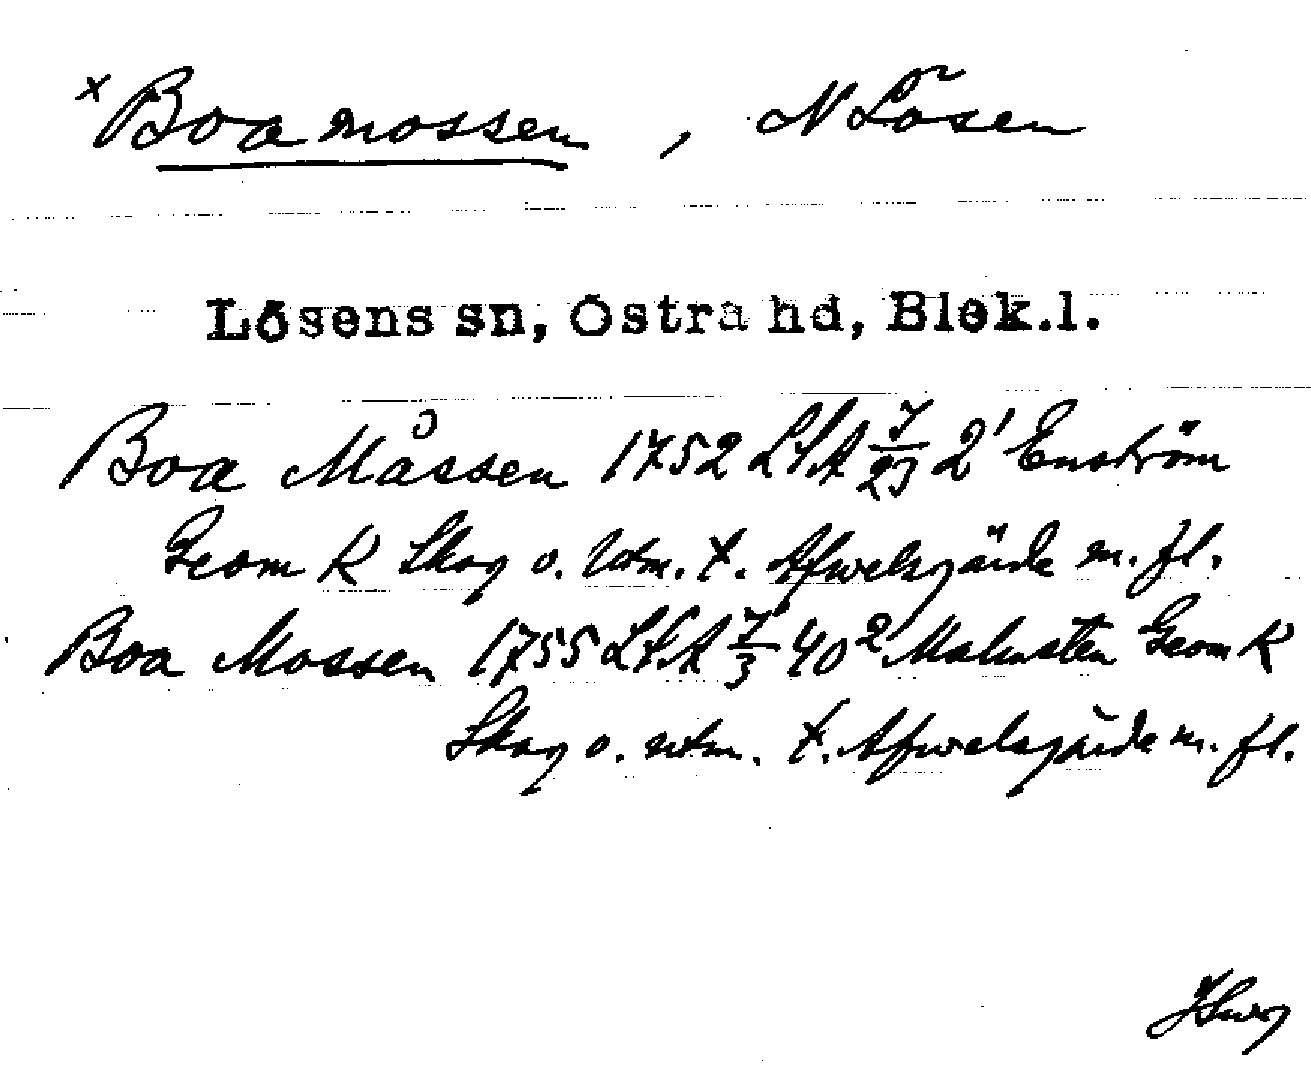 x Boamossen, N Lösen
Lösens sn, Östra hd, Blek.l.
Boa Måssen 1752 LSA 7/23 2' Enström
Geom K Skog o. Utm. t. Afwelsgärde m. fl.
Boa Mossen 1755 LSA 7/3 40² Malmsten Geom K
Skog o. utm. t. Afwelsgärde m. fl.